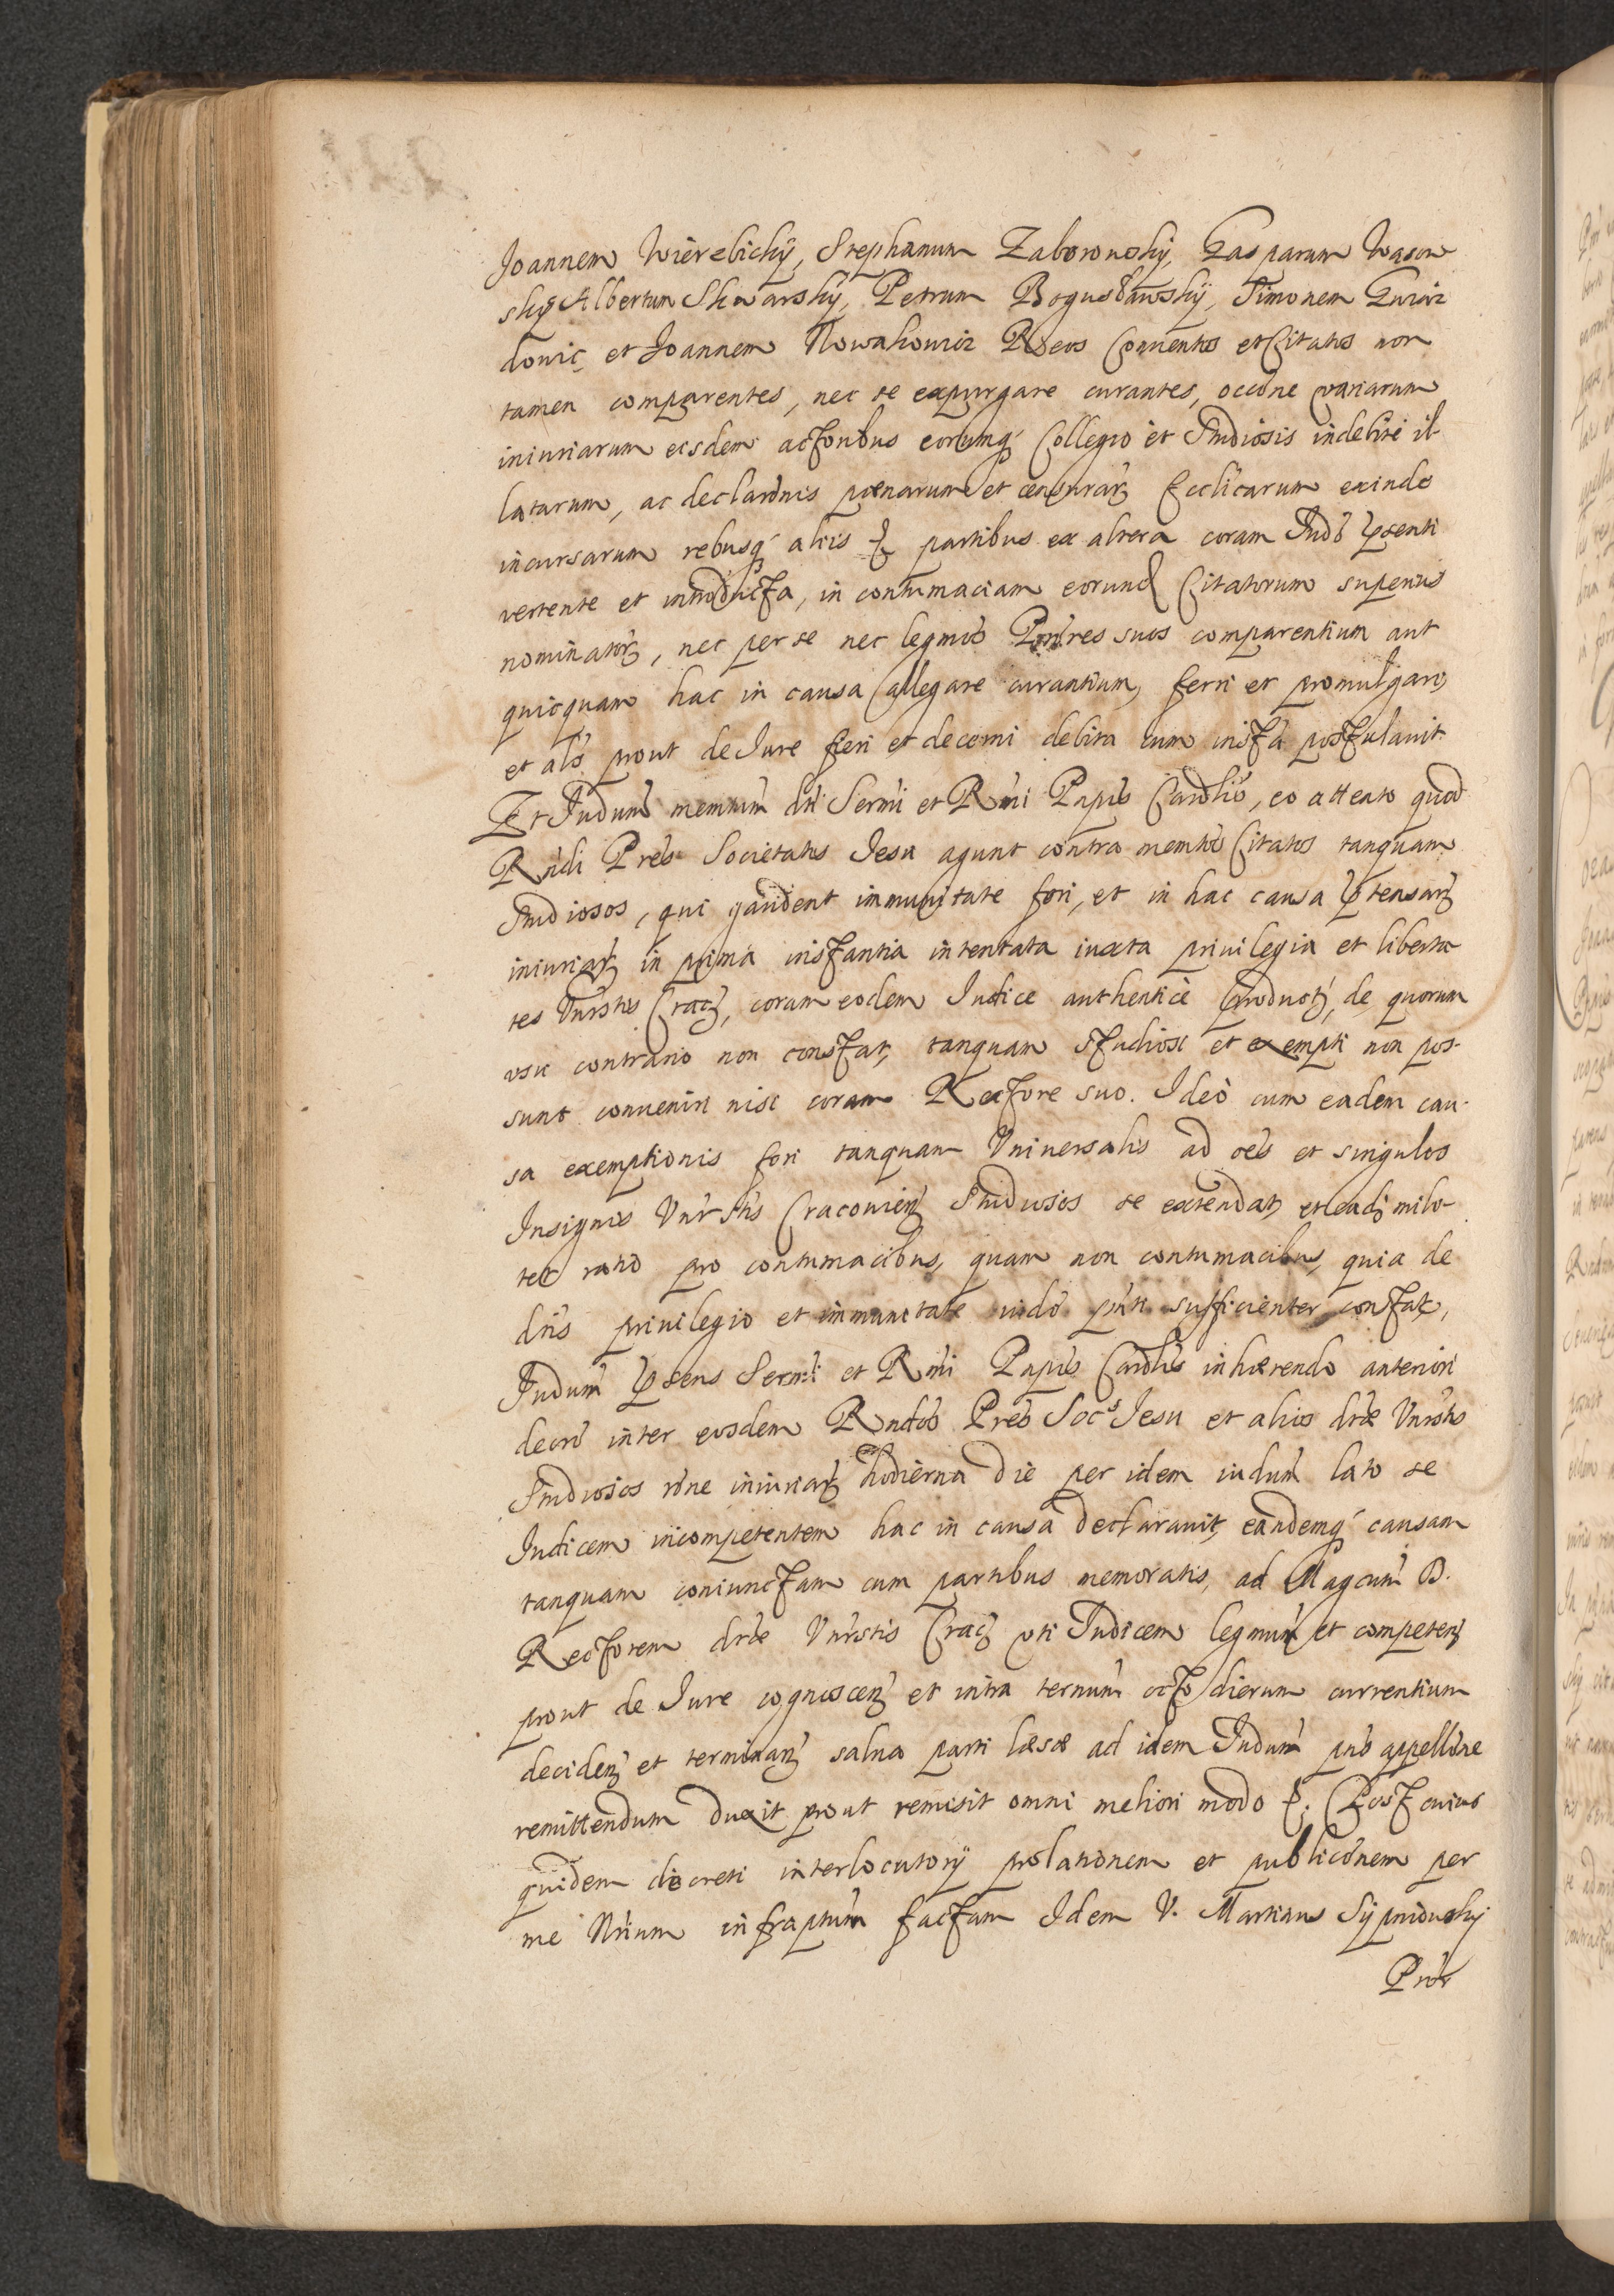 Joannem Wierzbickÿ, Stephanum Zaborowskÿ, Gasparum Wason
skÿ Albertum Skwarskÿ, Petrum Bogusławskÿ, Simonem
douic, et Joannem Nowakowicz Reos Conuentos et Citatos non
tamen comparentes, nec se expurgare curantes, occône variarum
iniuriarum eisdem actoribus eorumq́ Collegio et Studiosis indebitè il-
latarum, ac declarônis pœnarum et censurarꝫ Eccľicarum exinde
incursarum rebusq́ aliis &c partibus ex altera coram Judô pͣsenti
vertente et introducta, in contumaciam eorund Citatorum superius
nominatorꝫ, nec per se nec legmôs Prôres suos comparentium aut
quicquam hac in causa allegare curantium, ferri et promulgari,
et als prout de Jure fieri et decerni debita cum insťa postulauit.
Et Judum̃ memtum̃ dni Sermi et Rmi Papis Cardľis, eo attento quod
Rndi Pres Societatis Jesu agunt contra memtos Citatos tanquam
Studiosos, qui gaudent immunitate fori, et in hac causa pͣtensarꝫ
iniuriarꝫ in prima instantia intentata iuxta priuilegia et liberta
tes Vnirstis Cracꝫ, coram eodem Judice authenticè producꝫ, de quorum
vsu contrario non constat, tanquam studiosi et exempti non pos-
sunt conueniri nisi coram Rectore suo. Ideò cum eadem cau-
sa exemptionis fori tanquam Vniuersalis ad oẽs et singulos
Insignis Vnirstis Cracouienꝫ Studiosos se extendat, et eadꝫ milo-
tet ratio pro contumacibus, quam non contumacibus, quia de
dris priuilegio et immunitate iudô pñti sufficienter constat,
Judum̃ pͣsens Sermi et Rmi Papis Cardľis inhærendo anteriori
decrô inter eosdem Rndos Pres Socs Jesu et alios dtæ Vnirstis
Studiosos rône iniuriarꝫ hodierna die per idem iudum̃ lato se
Judicem incompetentem hac in causa declarauit, eandemq́ causam
tanquam coniunctam cum partibus memoratis, ad Magcum̃ D.
Rectorem dtæ Vnirstis Cracꝫ vti Judicem legmum̃ et competenꝫ
prout de Jure cognoscenꝫ et intra ternum̃ octo dierum currentium
decidenꝫ et terminanꝫ salua parti læsæ ad idem Judum̃ pñs appellône
remittendum duxit prout remisit omni meliori modo &c. Post cuius
quidem decreti interlocutorÿ prolationem et publicônem per
me Nrium infraptum̃ factam Idem V. Martinus Sÿpniowskÿ
Prôr